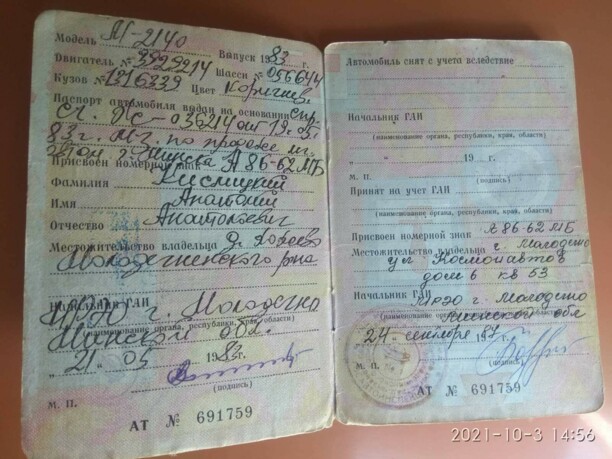 Модель М-2140
Выпуск 1983 г.
Двигатель № 3929214 Шасси № 056644
Кузов № 1216339 Цвет Коричнев.
Паспорт автомобиля выдан на основании спр.
сч. № - 036214 от 19.05.
83г. М-г. по продаже
г. Минска
Присвоен номерной знак А 86-62 МБ
Фамилия Кислицкий
Имя Анатолий
Отчество Анатольевич
Местожительство владельца д.
Молодечненского р-на
Начальник ГАИ
МРЭО г. Молодечно
(наименование органа, республики, края, области)
Минской обл.
„ 21 " 05 1983 г.
(подпись)
М. П.
АТ № 691759
Автомобиль снят с учета вследствие
Начальник ГАИ
(наименование органа, республики, края, области)
„ " 19 г.
М. П. (подпись)
Принят на учет ГАИ
(наименование органа, республики, края, области)
Присвоен номерной знак А 86-62 МБ
Местожительство владельца г. Молодечно
ул Космонавтов
дом 6 кв 53
Начальник ГАИ МРЭО г. Молодечно
Минской обл
(наименование органа, республики, края, области)
„ 24 " сентября 87
М. П. (подпись)
АТ № 691759
2021-10-3 14:56